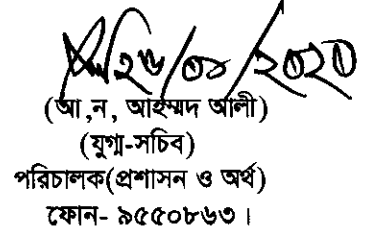 ২৬/০১/২০২০
(আ,ন, আহম্মদ আলী)
(যুগ্ম-সচিব)
পরিচালক(প্রশাসন ও অর্থ)
ফোন- ৯৫৫০৮৬৩।